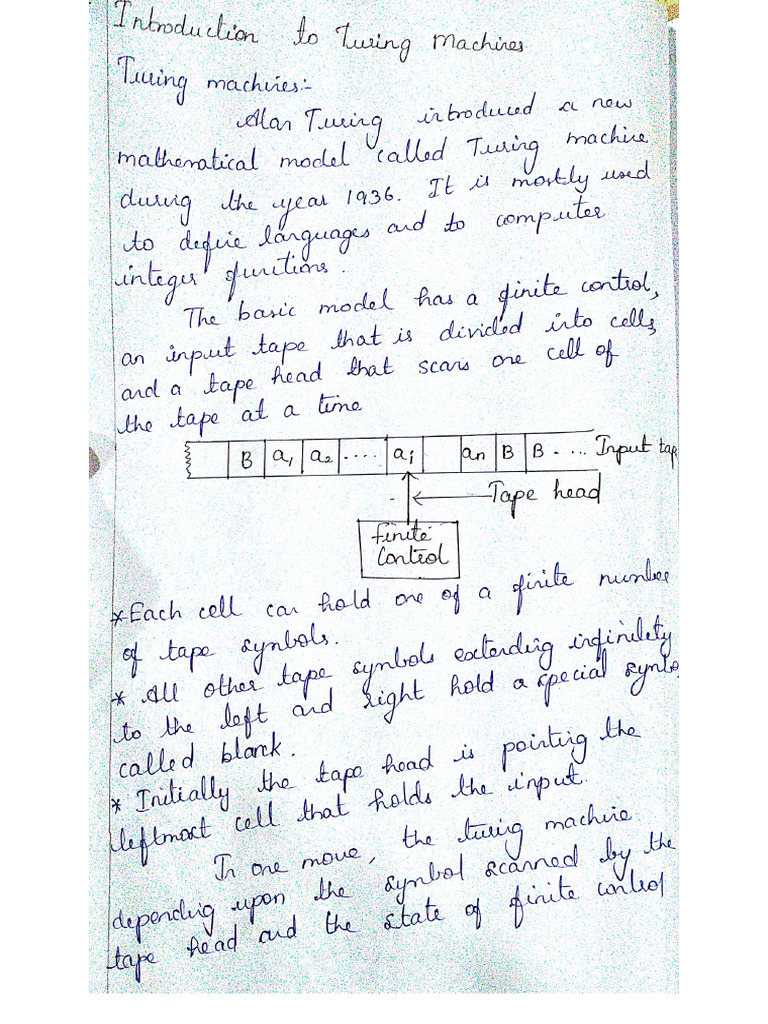 Introduction to Turing Machines
Turing machines:-
Alan Turing introduced a new
mathematical model called Turing machine
during the year 1936. It is mostly used
to define languages and to computer
integer functions.
The basic model has a finite control,
an input tape that is divided into cells,
and a tape head that scans one cell of
the tape at a time
B a1 a2 .... ai an B B - ... Input tap
Tape head
finite
control
*Each cell can hold one of a finite number
of tape symbols.
* All other tape symbols extending infinitely
to the left and right hold a special symbo
called blank.
* Initially the tape head is pointing the
leftmost cell that holds the input.
In one move, the turing machine
depending upon the symbol scanned by the
tape head and the state of finite control